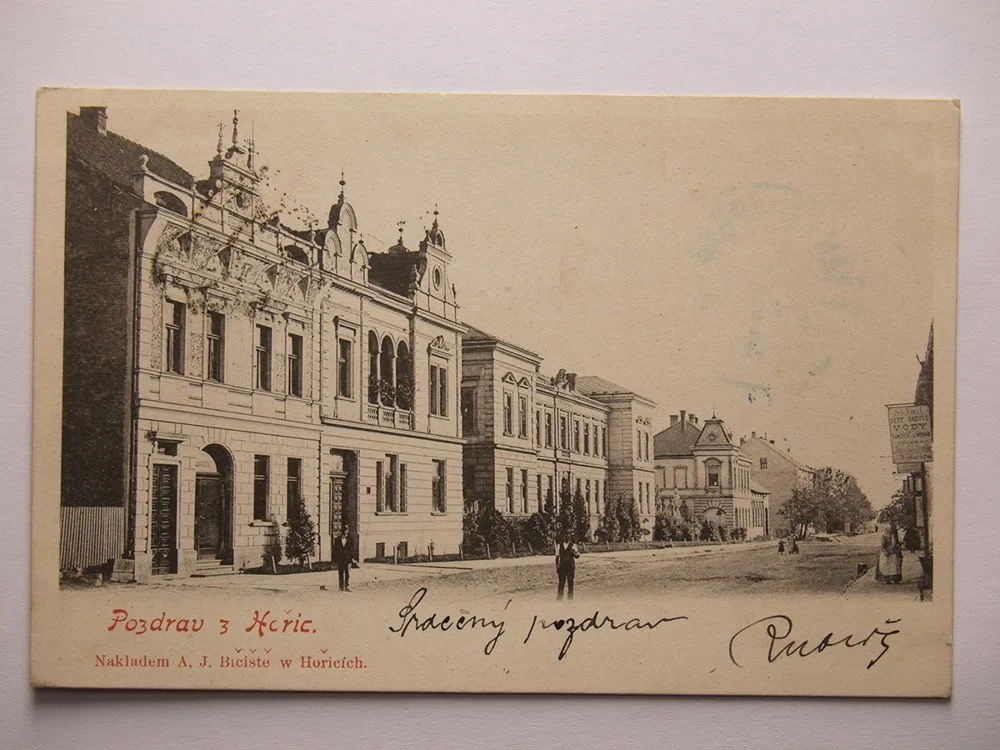 VODY
Pozdrav z Hořic.
Srdečný pozdrav
Nakladem A. J. Bičiště w Hořicích.